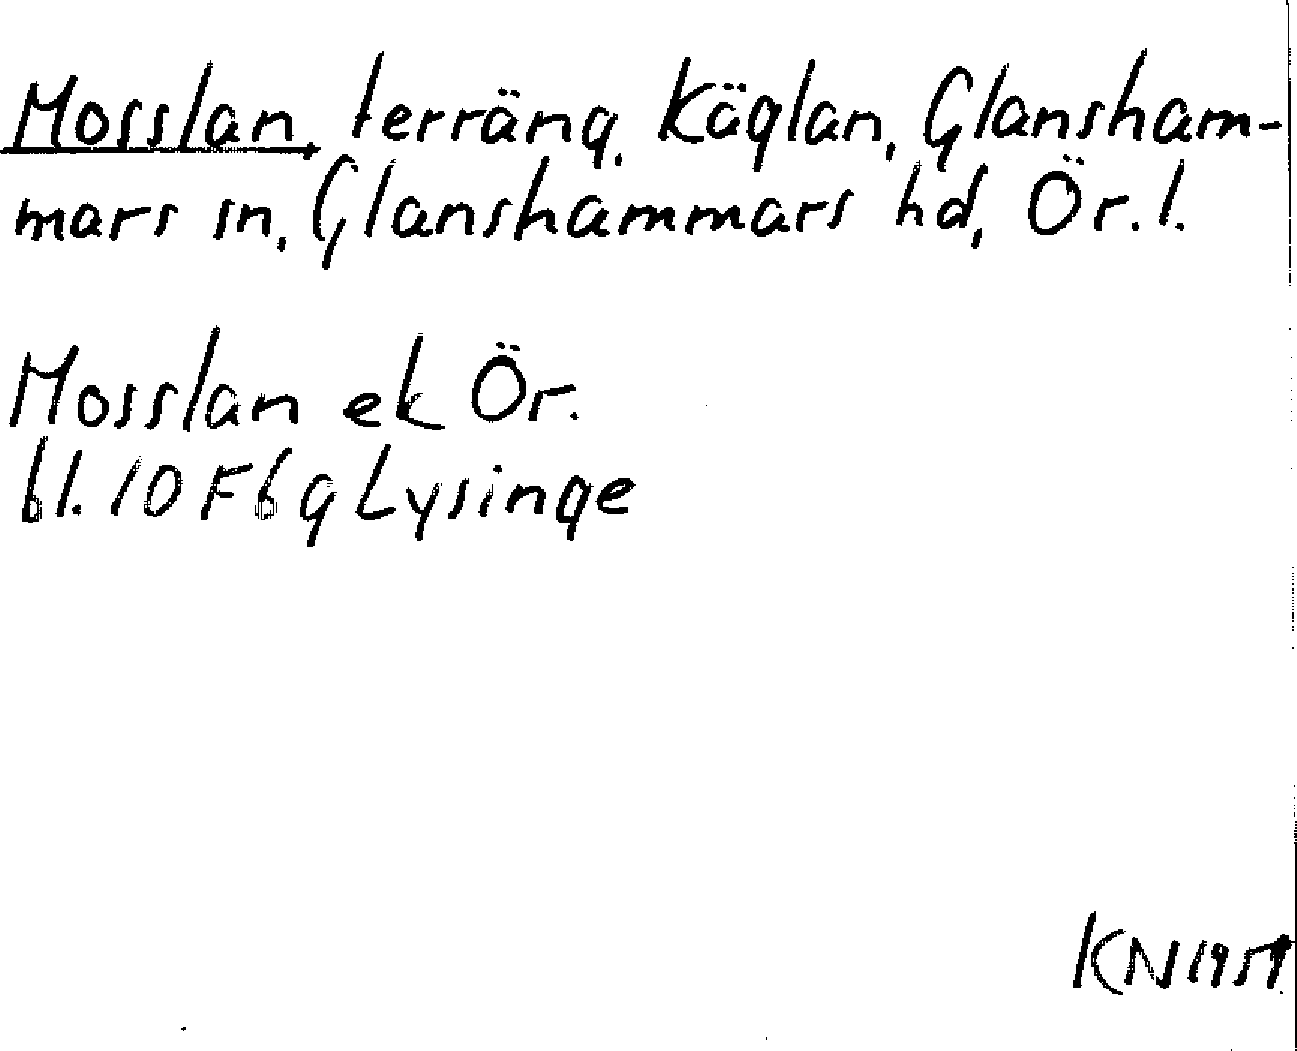 Mosslan, terräng, Käglan, Glansham-
mars sn, Glanshammars hd, Ör. l.
Mosslan ek Ör.
bl. 10 F 6 g Lysinge
KN